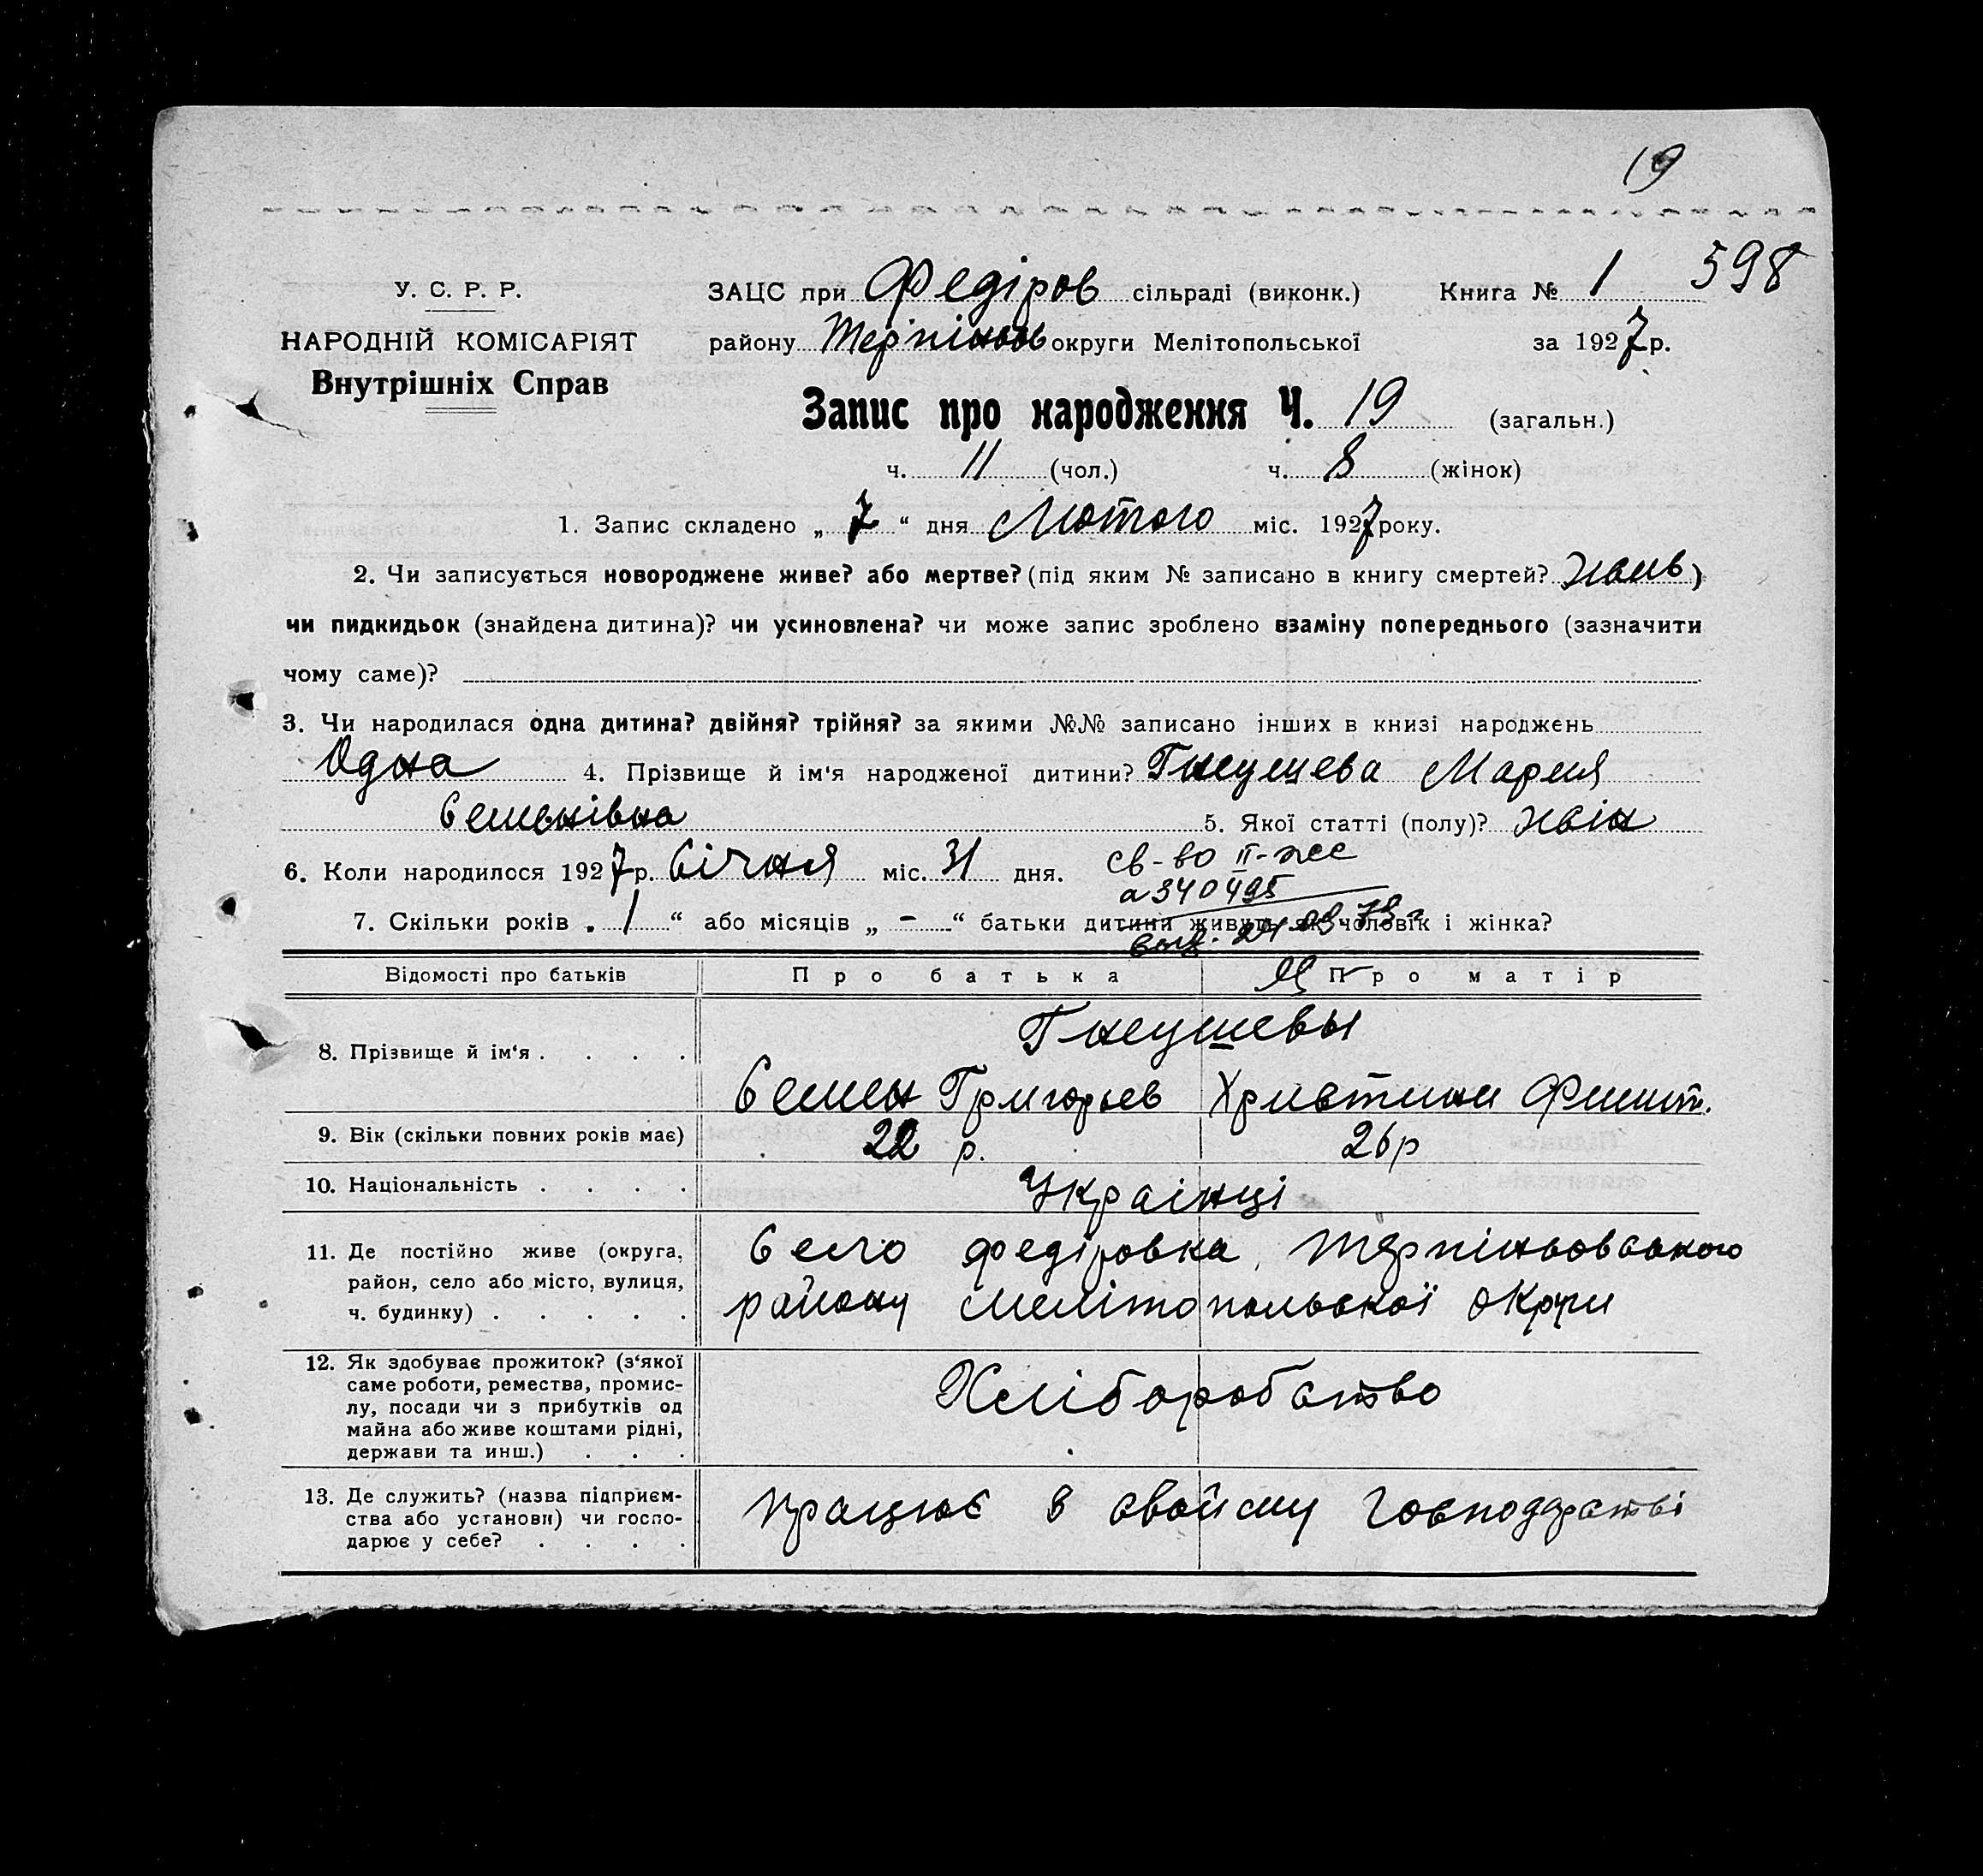 19
598
У. С. Р. Р.
НАРОДНІЙ КОМІСАРІЯТ
Внутрішніх Справ
ЗАЦС при Федіров сільраді (виконк.) Книга № 1
району Терпіньов округи Мелітопольської за 1927 р.
Запис про народження Ч. 19 (загальн.)
ч. 11 (чол.) ч. 8 (жінок)
1. Запис складено „ 7 “ дня Лютого міс. 1927 року.
2. Чи записується новороджене живе? або мертве? (під яким № записано в книгу смертей?)
чи пидкидьок (знайдена дитина)? чи усиновлена? чи може запис зроблено взаміну попереднього (зазначити
чому саме)?
3. Чи народилася одна дитина? двійня? трійня? за якими №№ записано інших в книзі народжень
Одна 4. Прізвище й ім‘я народженої дитини? Гнеушева Мария
Семенівна 5. Якої статті (полу)? жін
6. Коли народилося 1927 р. Січня міс. 31 дня.
св-во II-жс
а 340495
7. Скільки років „ 1 “ або місяців „ - “ батьки дитини живуть як чоловік і жінка?
Відомості про батьків Про батька Про матір
8. Прізвище й ім‘я . . . . Гнеушевы
Семен Григорьев Христини Филип.
9. Вік (скільки повних років має) 22 р. 26 р
10. Національність . . . . Українці
11. Де постійно живе (округа, район, село або місто, вулиця, ч. будинку) . . . . . Село Федіровка, Терпіньовського
району Мелітопольскої округи
12. Як здобуває прожиток? (з‘якої
саме роботи, ремества, промис-
лу, посади чи з прибутків од
майна або живе коштами рідні,
держави та инш.) . . . Хліборобство
13. Де служить? (назва підприєм-
ства або установи) чи госпо-
дарює у себе? . . . . працює в свойему господарстві